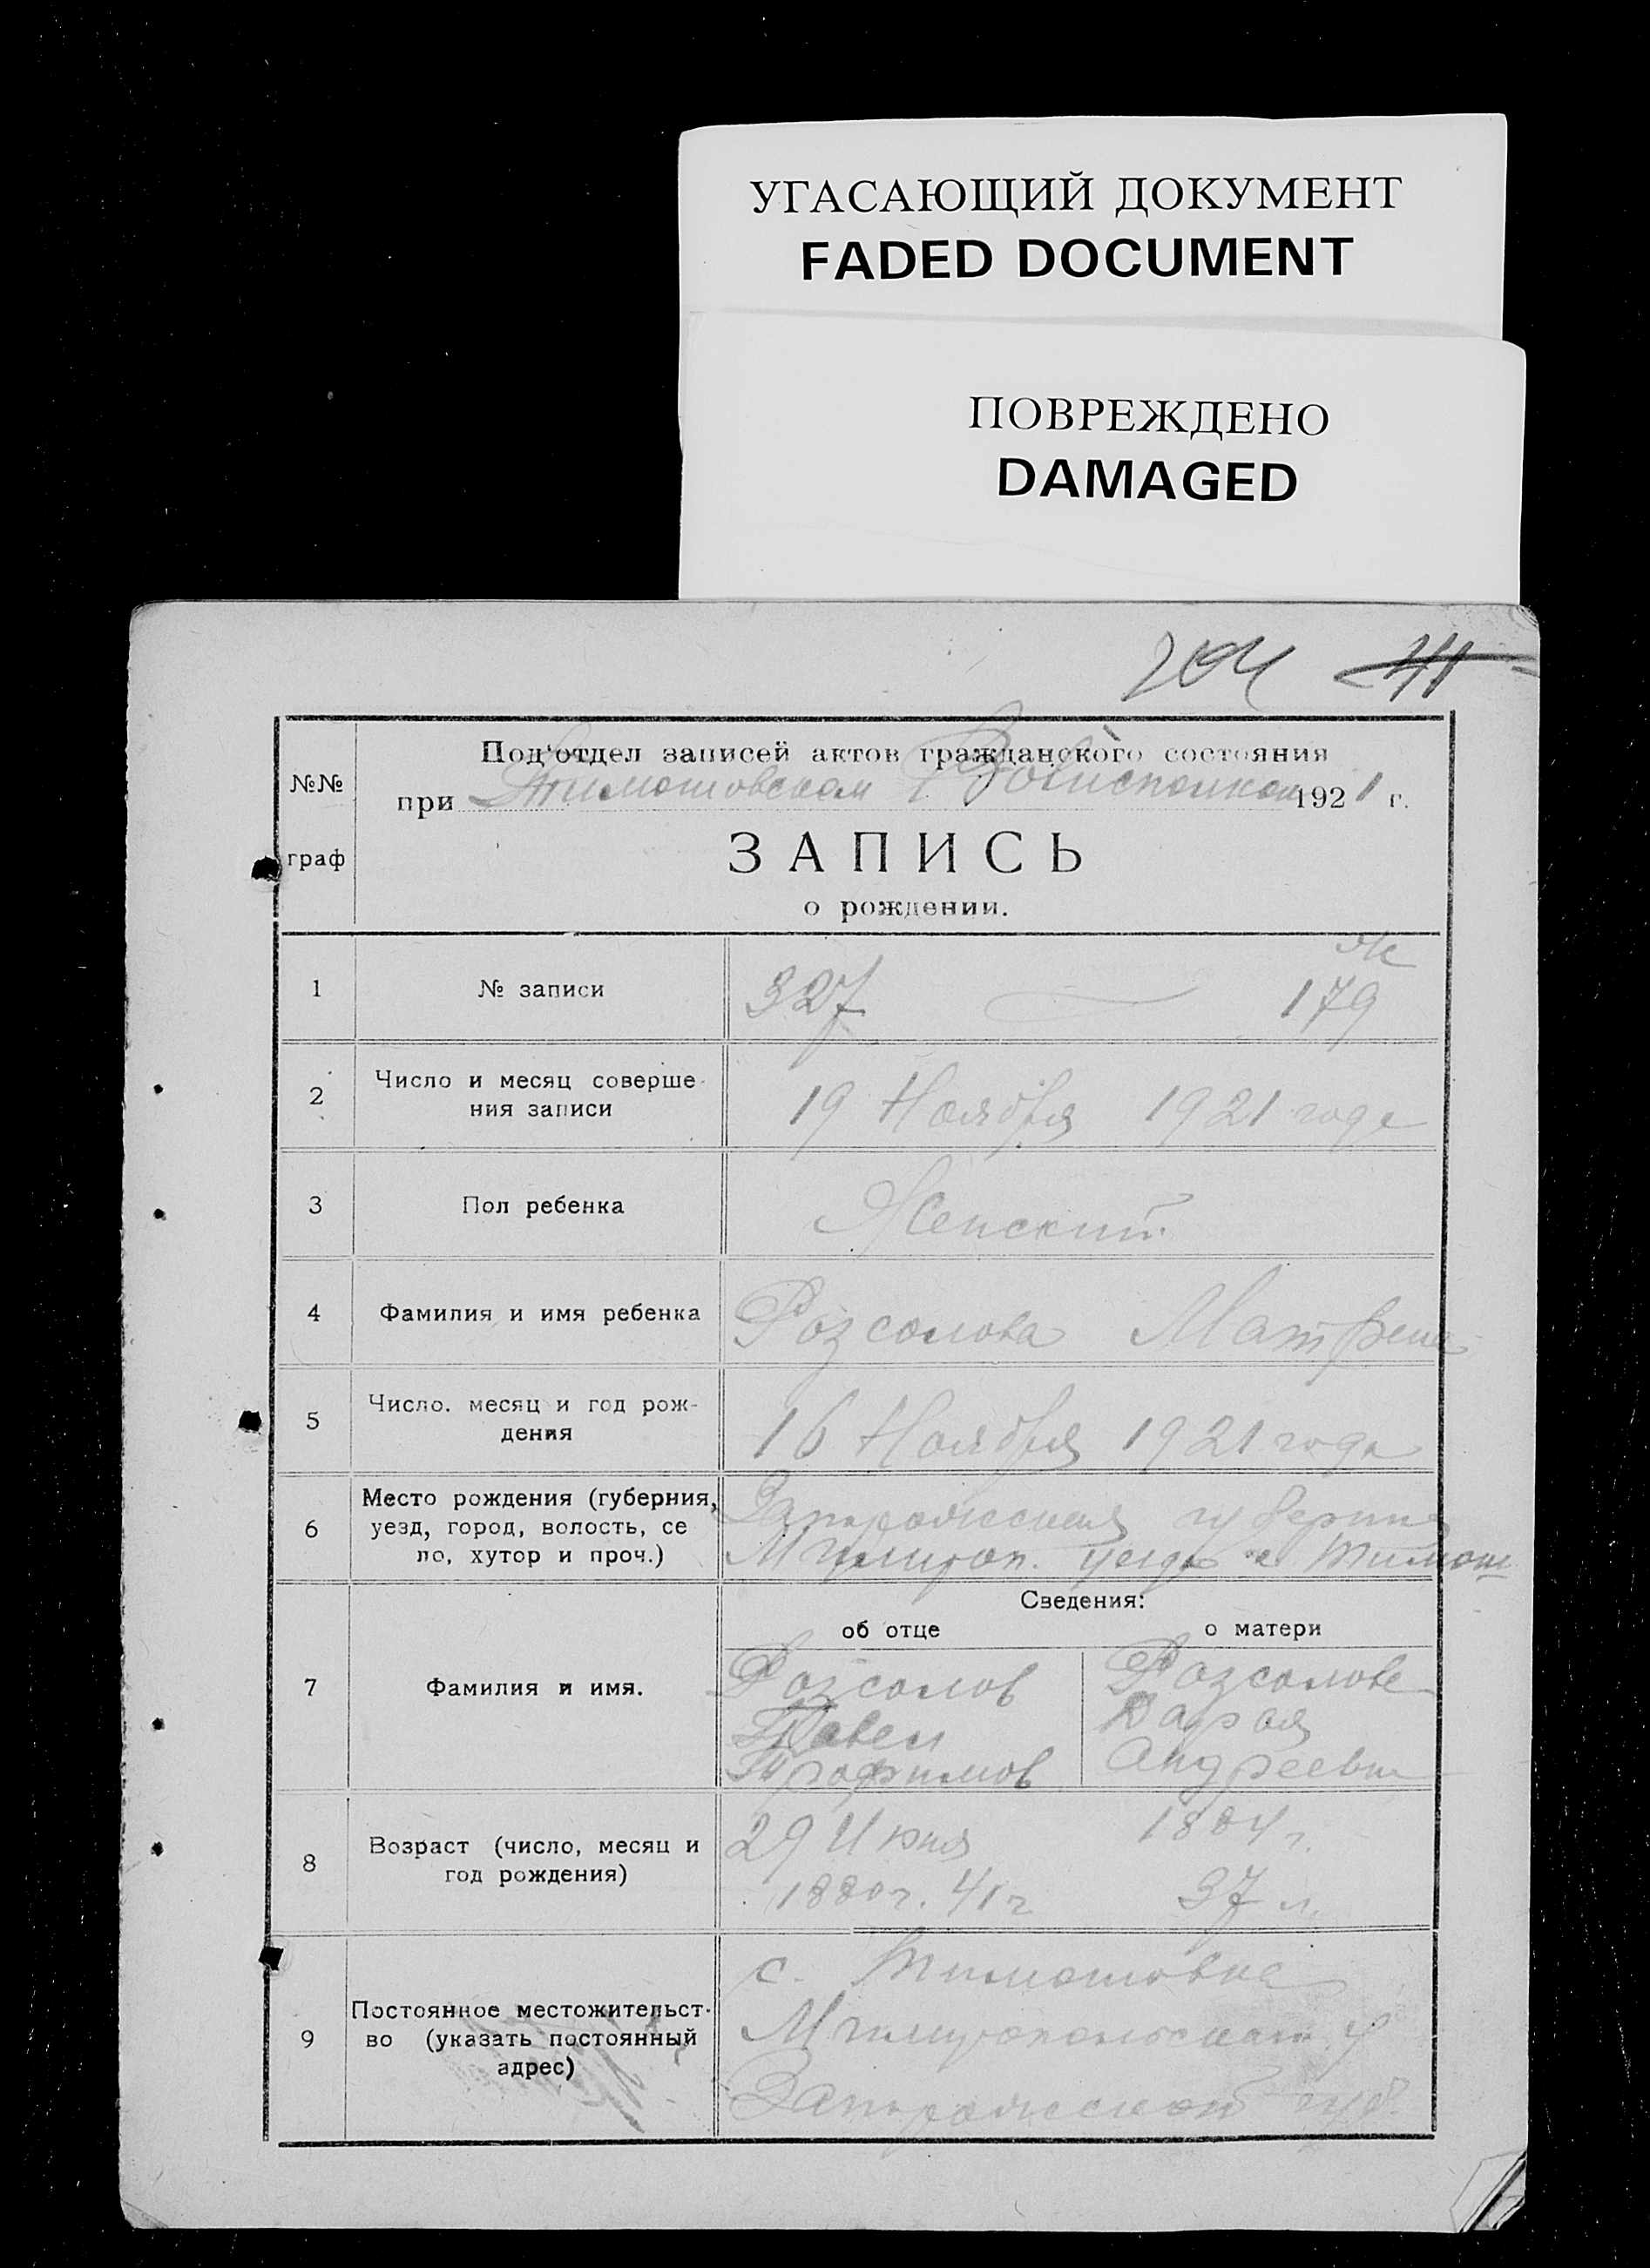 УГАСАЮЩИЙ ДОКУМЕНТ
FADED DOCUMENT
ПОВРЕЖДЕНО
DAMAGED
204 41
№№
граф
Под'отдел записей актов гражданского состояния
при Тимошовском Волисполком 1921 г.
ЗАПИСЬ
о рождении.
1 № записи 327 179
2 Число и месяц соверше-
ния записи
19 Ноября 1921 года
3 Пол ребенка Женский
4 Фамилия и имя ребенка Розсолова Матрена
5 Число. месяц и год рож-
дения
16 Ноября 1921 года
6 Место рождения (губерния,
уезд, город, волость, се
ло, хутор и проч.)
Запорожская губерния
Мелитоп. уезда с Тимош
Сведения:
об отце
о матери
7 Фамилия и имя.
Розсолов
Павел
Трофимов
Розсолова
Дарья
Андреевна
8 Возраст (число, месяц и
год рождения)
29 Июня
1880 г. 41 г
1884 г.
37 л.
9 Постоянное местожительст-
во (указать постоянный
адрес)
с. Тимошовка
Мелитопольского у
Запорожской губ.